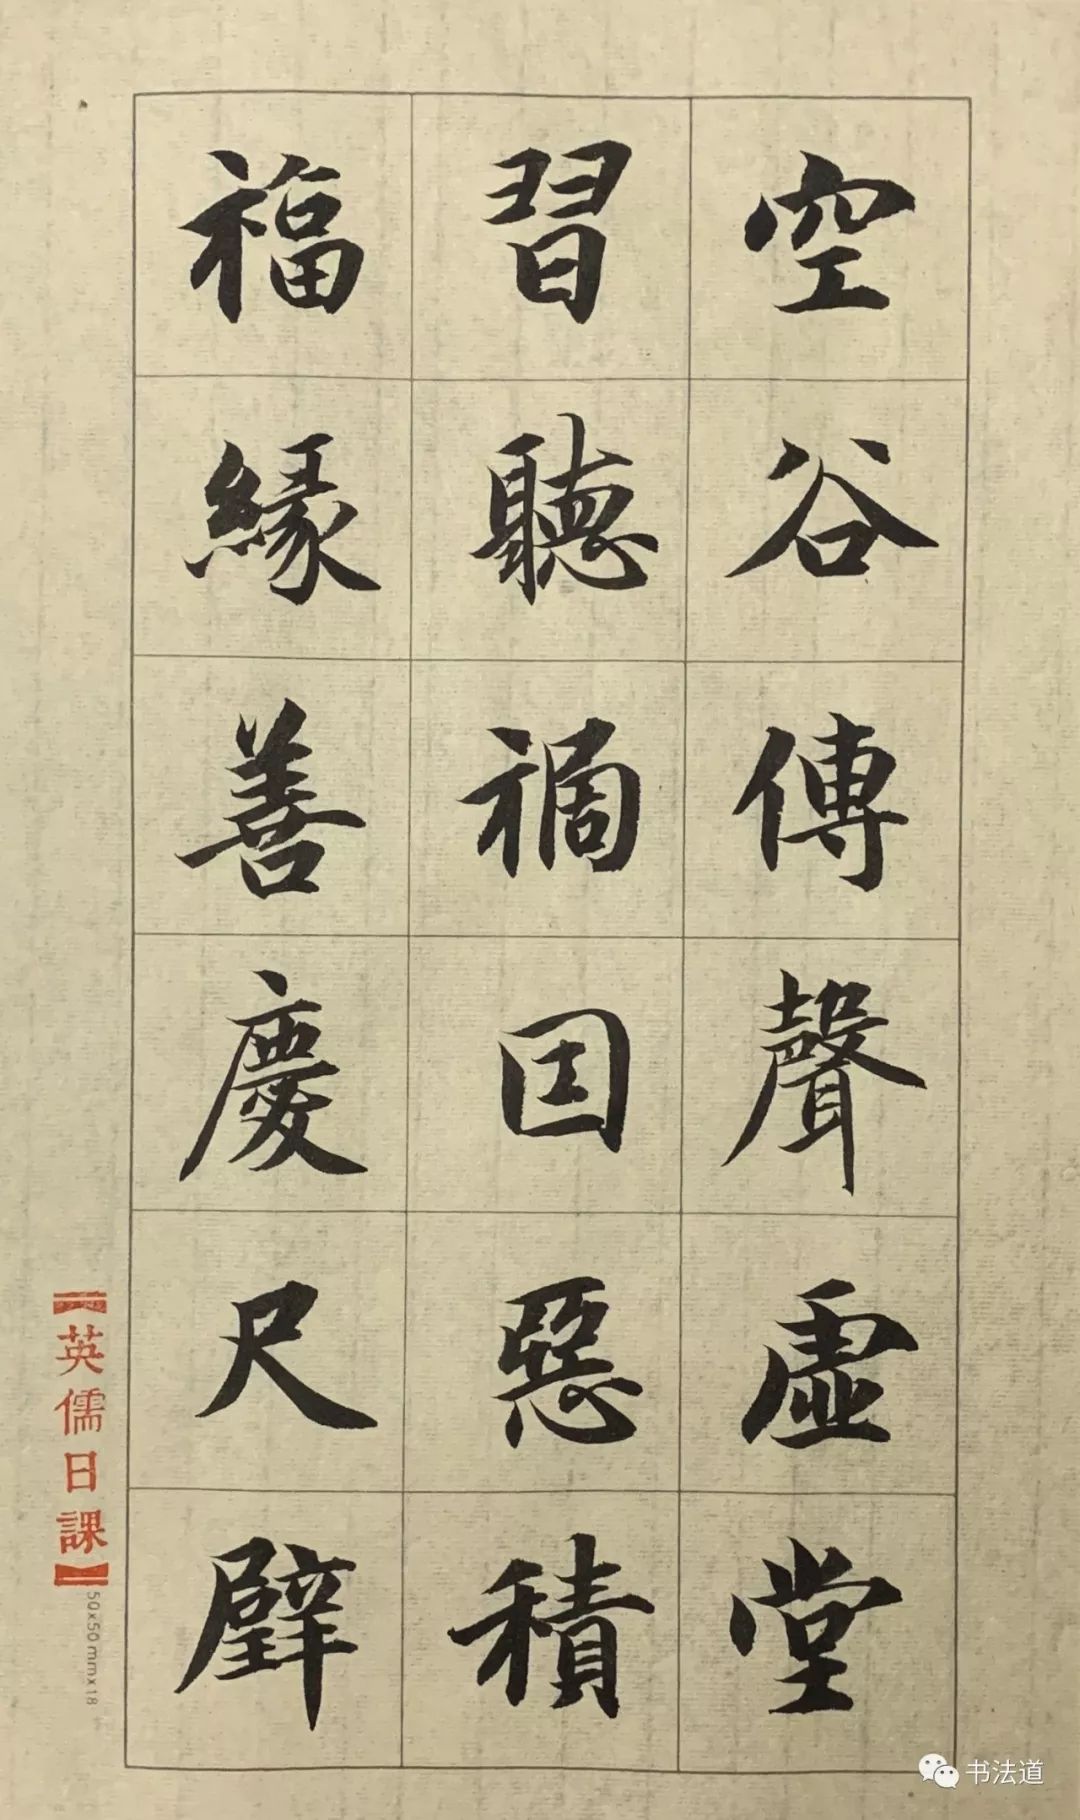 空谷傳聲虛堂
習聽禍因惡積
福緣善慶尺璧
【英儒日課】
50x50mmx18
书法道